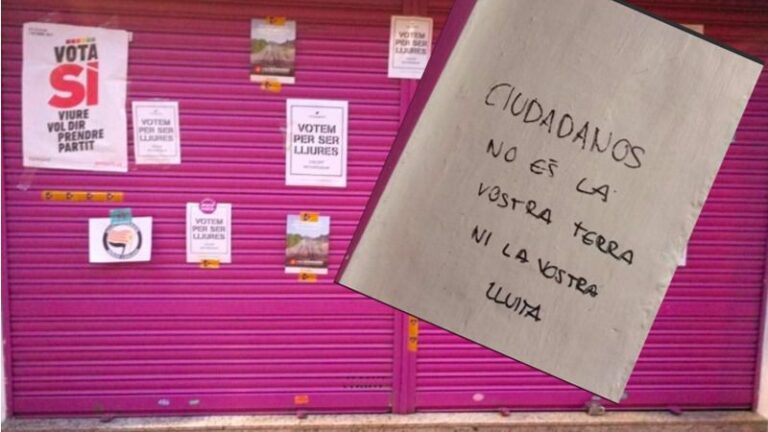 VOTA
SÍ
VIURE
VOL DIR
PRENDRE
PARTIT
VOTEM
PER SER
LLIURES
VOTEM
PER SER
LLIURES
VOTEM
PER SER
LLIURES
VOTEM
PER SER
LLIURES
CIUDADANOS
NO ÉS LA
VOSTRA TERRA
NI LA VOSTRA
LLUITA